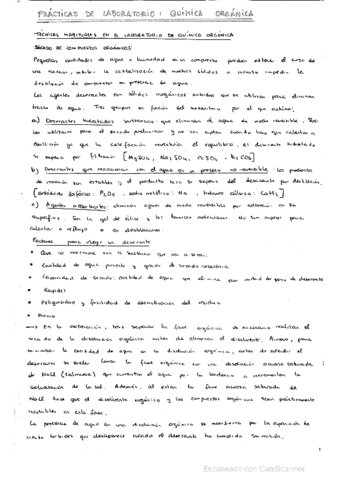 PRÁCTICAS DE LABORATORIO: QUÍMICA ORGÁNICA
TÉCNICAS HABITUALES EN EL LABORATORIO DE QUÍMICA ORGÁNICA
SECADO DE COMPUESTOS ORGÁNICOS
Pequeñas cantidades de agua o humedad en un compuesto pueden alterar el curso de
una reacción, inhibir la cristalización de muchos sólidos o incluso impedir la
destilación de compuestos en presencia de agua.
Los agentes desecantes son sólidos inorgánicos anhidros que se utilizan para eliminar
trazas de agua. Tres grupos en función del mecanismo por el que actúan:
a) Desecantes hidratados: sustancias que eliminan el agua de modo reversible. Se
utilizan para el secado preliminar y no son aptos cuando hay que calentar a
ebullición ya que la calefacción revertiría el equilibrio. El desecante hidratado
se separa por filtración [MgSO4, Na2SO4, CaSO4, K2CO3]
b) Desecantes que reaccionan con el agua en un proceso no reversible: los productos
de reacción son estables y el producto seco se separa del desecante por destilación.
[anhídrido fosfórico: P2O5, sodio metálico: Na, hidruro cálcico: CaH2]
c) Agentes adsorbentes: eliminan agua de modo reversible por adsorción en su
superficie. Son la gel de sílice y los tamices moleculares. No son aptos para
calentar a reflujo o en destilaciones.
Factores para elegir un desecante
• Que no reaccione con la sustancia que va a secar.
• Cantidad de agua presente y grado de secado necesario
• Capacidad de secado: cantidad de agua que elimina por unidad de peso de desecante
• Rapidez
• Peligrosidad y facilidad de destrucción del residuo
• Precio
En la extracción, tras separar la fase orgánica es necesario realizar el
secado de la disolución orgánica antes de eliminar el disolvente. Aunque, para
minimizar la cantidad de agua en la disolución orgánica, antes de añadir el
desecante se suele lavar la fase orgánica con una disolución acuosa saturada
de NaCl (salmuera) que arrastra el agua por la tendencia a incrementar la
solvatación de la sal. Además, al estar la fase acuosa saturada de
NaCl hace que el disolvente orgánico y los compuestos orgánicos sean prácticamente
insolubles en esta fase.
La presencia de agua en una disolución orgánica se manifiesta por la aparición de
cierta turbidez que desaparece cuando el desecante ha cumplido su misión.
1
Escaneado con CamScanner